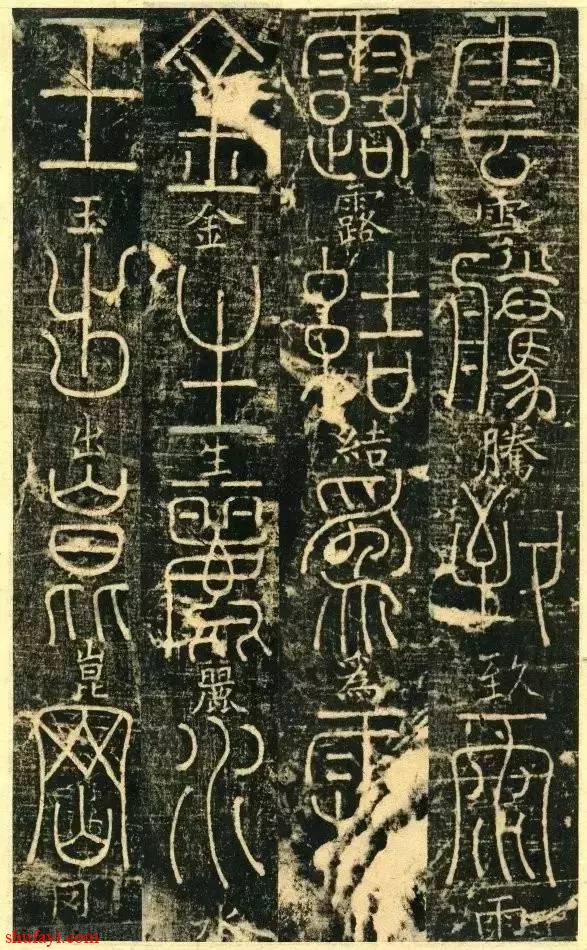 雲雲騰騰致致雨雨
露露結結為為霜
金金生生麗麗水水
玉玉出出崑崑岡岡
shufayi.com